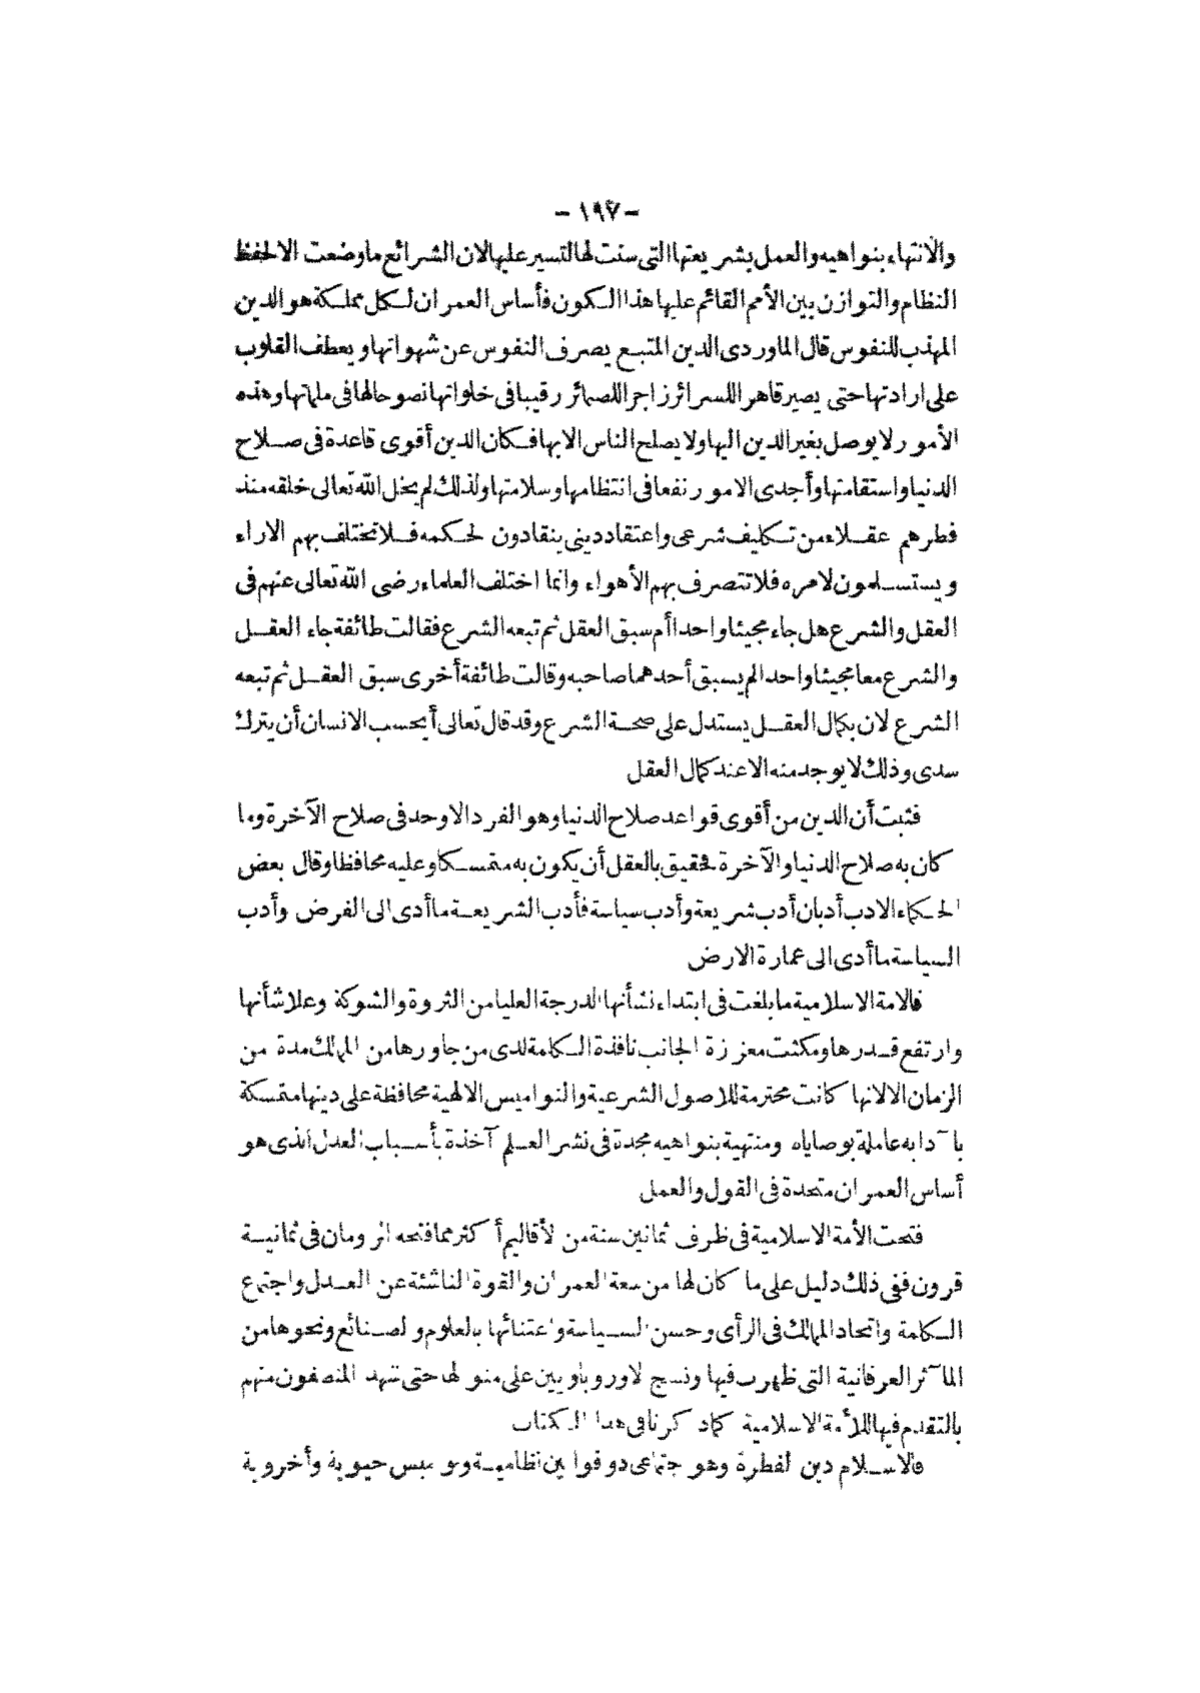 - ١٩٧ -
والانتهاء بنواهيه والعمل بشريعتها التى سنت لها لتسير عليها لان الشرائع ما وضعت الا لحفظ
النظام والتوازن بين الأمم القائم عليها هذا الكون فأساس العمران لكل مملكة هو الدين
المهذب للنفوس قال الماوردى الدين المتبع يصرف النفوس عن شهواتها ويعطف القلوب
على ارادتها حتى يصير قاهرا للسرائر زاجرا للضمائر رقيبا فى خلواتها نصوحا لها فى ملماتها وهذه
الأمور لا يوصل بغير الدين اليها ولا يصلح الناس الا بها فكان الدين أقوى قاعدة فى صلاح
الدنيا واستقامتها وأجدى الامور نفعا فى انتظامها وسلامتها ولذلك لم يخل الله تعالى خلقه منذ
فطرهم عقلاء من تكليف شرعى واعتقاد دينى ينقادون لحكمه فلا تختلف بهم الاراء
ويستسلمون لامره فلا تتصرف بهم الأهواء وانما اختلف العلماء رضى الله تعالى عنهم فى
العقل والشرع هل جاء مجيئا واحدا أم سبق العقل ثم تبعه الشرع فقالت طائفة جاء العقل
والشرع معا مجيئا واحدا لم يسبق أحدهما صاحبه وقالت طائفة أخرى سبق العقل ثم تبعه
الشرع لان بكمال العقل يستدل على صحة الشرع وقد قال تعالى أيحسب الانسان أن يترك
سدى وذلك لا يوجد منه الا عند كمال العقل
فثبت أن الدين من أقوى قواعد صلاح الدنيا وهو الفرد الاوحد فى صلاح الآخرة وما
كان به صلاح الدنيا والآخرة فحقيق بالعقل أن يكون به متمسكا وعليه محافظا وقال بعض
الحكماء الادب أدبان أدب شريعة وأدب سياسة فأدب الشريعة ما أدى الى الفرض وأدب
السياسة ما أدى الى عمارة الارض
فالامة الاسلامية ما بلغت فى ابتداء نشأنها الدرجة العليا من الثروة والشوكة وعلا شأنها
وارتفع قدرها ومكثت معززة الجانب نافذة الكلمة لدى من جاورها من الممالك مدة من
الزمان الا لانها كانت محترمة للاصول الشرعية والنواميس الالهية محافظة على دينها متمسكة
بآدابه عاملة بوصاياه ومنتهية بنواهيه مجدة فى نشر العلم آخذة بأسباب العدل الذى هو
أساس العمران متحدة فى القول والعمل
فتحت الأمة الاسلامية فى ظرف ثمانين سنة من الأقاليم أكثر مما فتحه الرومان فى ثمانية
قرون ففى ذلك دليل على ما كان لها من سعة العمران والقوة الناشئة عن العدل واجتماع
الكلمة واتحاد الممالك فى الرأى وحسن السياسة واعتنائها بالعلوم والصنائع ونحوها من
المآثر العرفانية التى ظهرت فيها ونسج الاوروباويين على منوالها حتى شهد المنصفون منهم
بالتقدم فيها للأمة الاسلامية كما ذكرنا فى هذا الكتاب
فالاسلام دين الفطرة وهو اجتماعى ذو قوانين نظامية ونواميس حيوية وأخروية